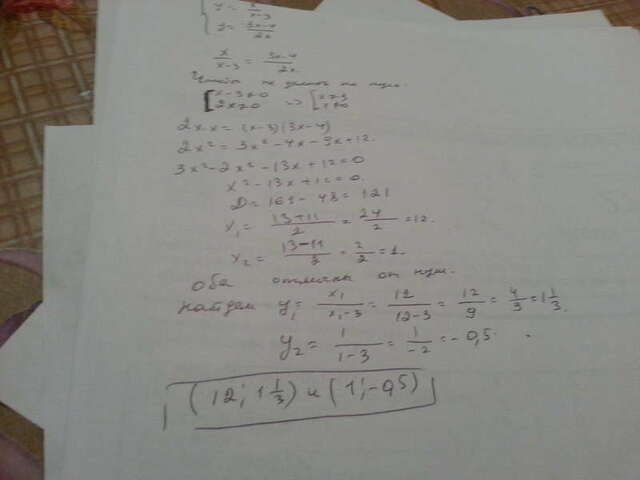 y = x/(x-3)
y = (3x-4)/2x
x/(x-3) = (3x-4)/2x
Чтобы не делить на нуль.
[x-3≠0 => [x≠3
2x≠0 x≠0
2x·x = (x-3)(3x-4)
2x² = 3x² - 4x - 9x + 12.
3x² - 2x² - 13x + 12 = 0
x² - 13x + 12 = 0.
D = 169 - 48 = 121
x₁ = (13+11)/2 = 24/2 = 12.
x₂ = (13-11)/2 = 2/2 = 1.
оба отличны от нуля.
найдем y₁ = x₁/(x₁-3) = 12/(12-3) = 12/9 = 4/3 = 1 1/3.
y₂ = 1/(1-3) = 1/-2 = -0,5.
(12; 1 1/3) и (1; -0,5)